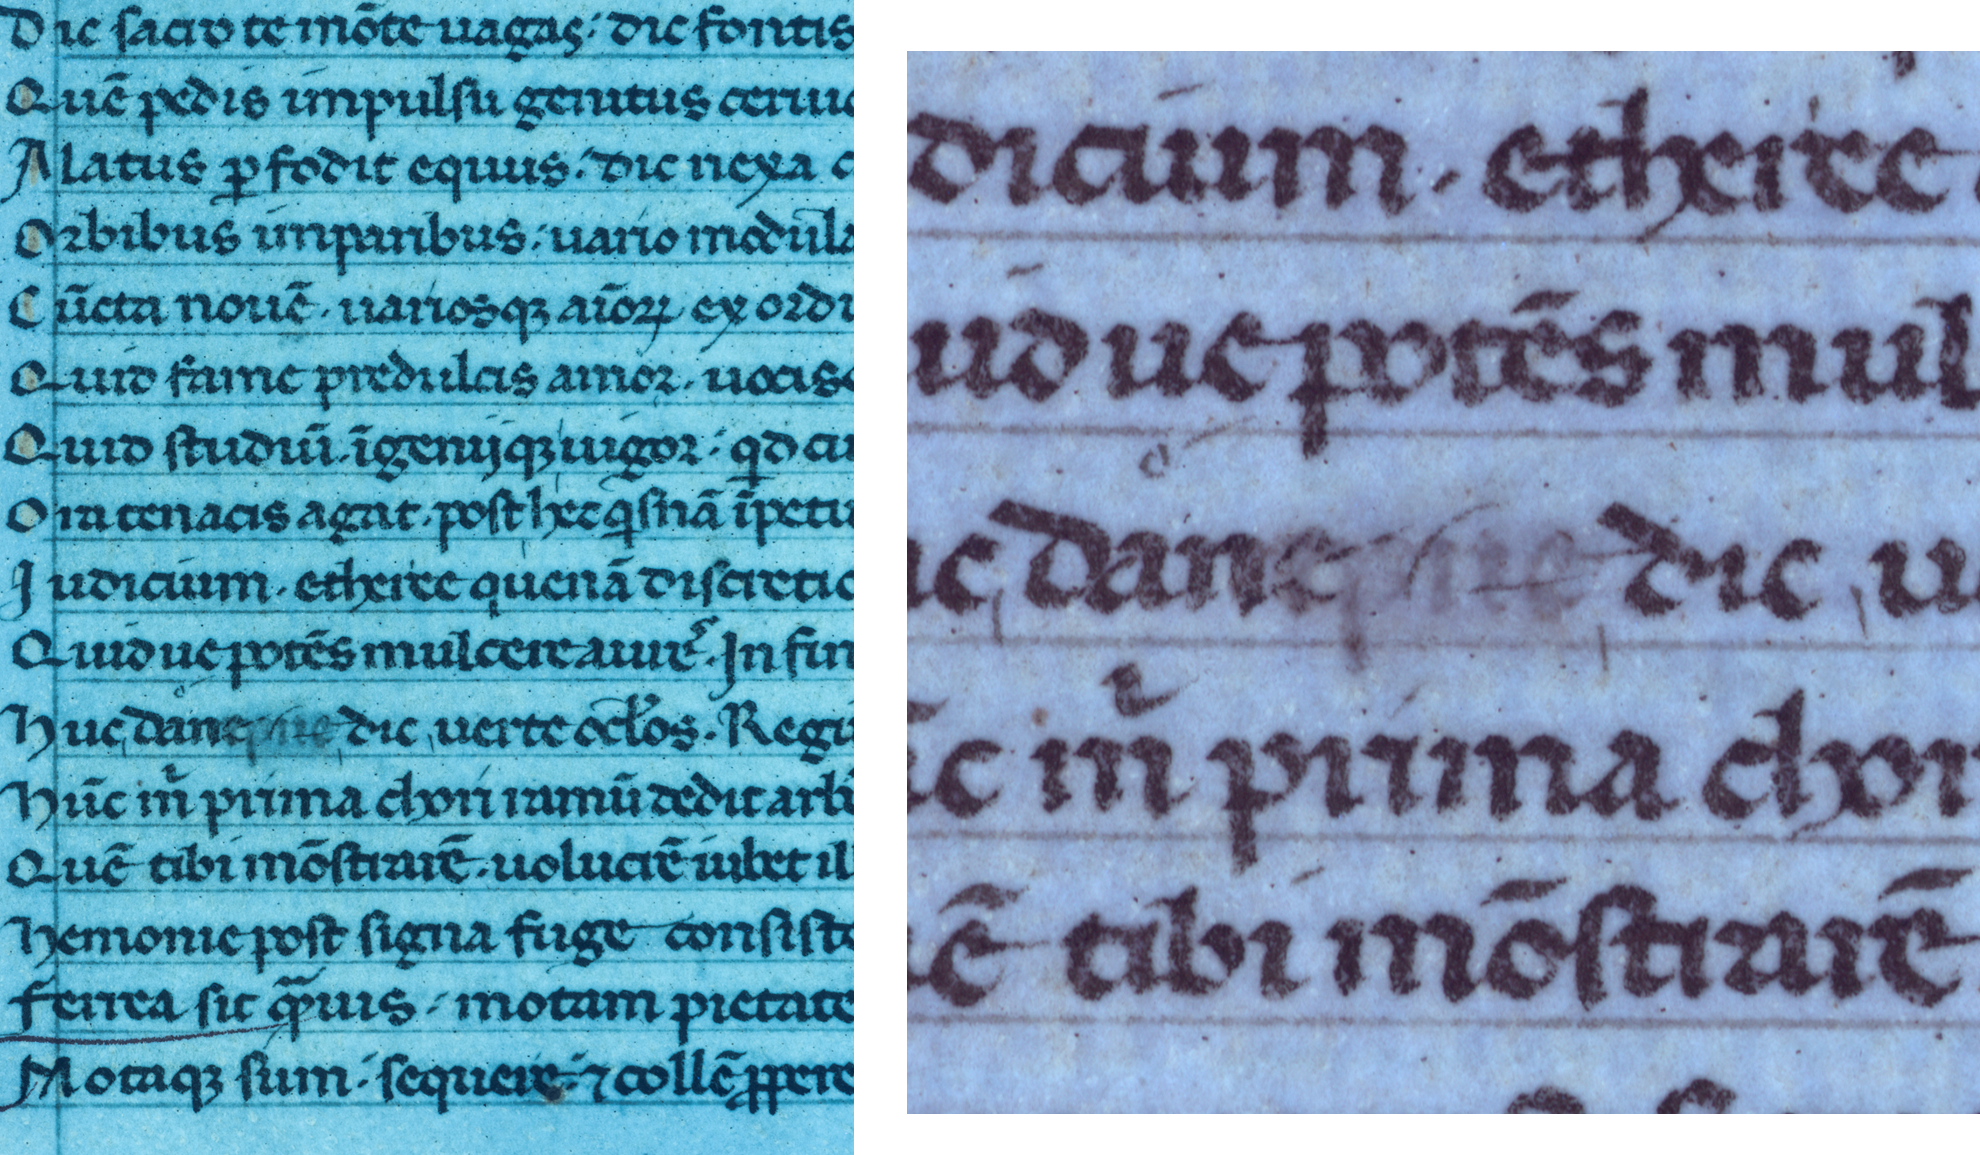 Dic sacro te mōte uagas· dic fontis
Quē pedis impulsu genitus ceruic
Alatus ꝑfodit equus· dic nexa c
Orbibus imparibus· uario modula
Cūcta nouē· uariosqꝫ aīoꝝ ex ordi
Quid fame predulcis amor· uocis
Quid studiū īgeniiqꝫ uigor· qd cu
Ora tenacis agat· post hec īpetu
Iudicium· etheree quenā discretio
Quidue potēs mulcere aures· In fin
Huc dic uerte oclos· Regi
Hūc prima chori ramū dedit arbi
Quē tibi mōstrarē· uolucrē iubet il
Hemonie post signa fuge consiste
Ferrea sit quis· motam pietate
Motaqꝫ sum· sequere· ⁊ collē ꝓpere
dicium· etheree
uidue potēs mul
uc dic u
c prima chori
ē tibi mōstrarē